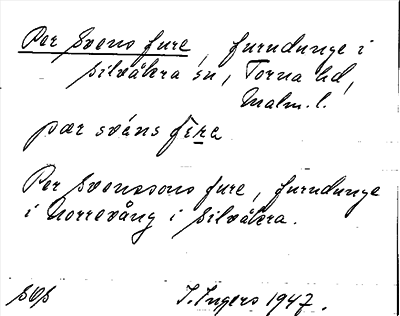 Per Svens fure, furudunge i
Silvåkra sn, Torna hd,
Malm. l.
pær sväns
Per Svenssons fure, furudunge
i Norrevång i Silvåkra.
I. Ingers 1947.